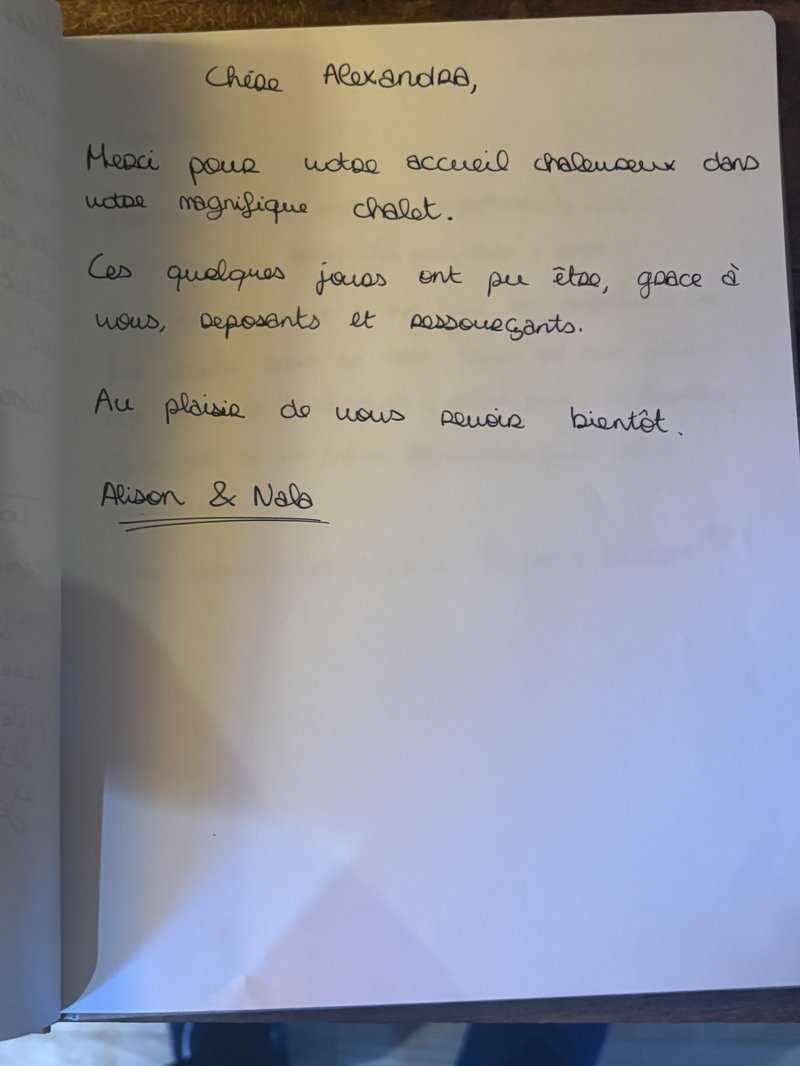 Chère Alexandra,
Merci pour votre accueil chaleureux dans
votre magnifique chalet.
Ces quelques jours ont pu être, grace à
vous, reposants et ressourçants.
Au plaisir de vous revoir bientôt.
Alison & Nala